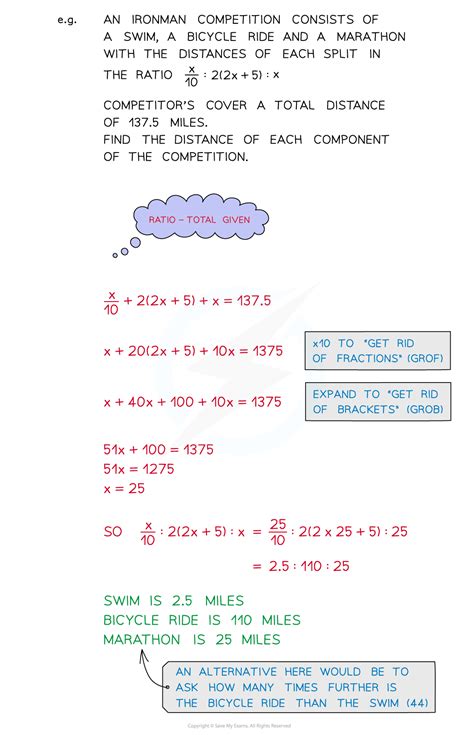 e.g. AN IRONMAN COMPETITION CONSISTS OF
A SWIM, A BICYCLE RIDE AND A MARATHON
WITH THE DISTANCES OF EACH SPLIT IN
THE RATIO x/10 : 2(2x + 5) : x
COMPETITOR'S COVER A TOTAL DISTANCE
OF 137.5 MILES.
FIND THE DISTANCE OF EACH COMPONENT
OF THE COMPETITION.
RATIO – TOTAL GIVEN
x/10 + 2(2x + 5) + x = 137.5
x + 20(2x + 5) + 10x = 1375
x10 TO "GET RID
OF FRACTIONS" (GROF)
x + 40x + 100 + 10x = 1375
EXPAND TO "GET RID
OF BRACKETS" (GROB)
51x + 100 = 1375
51x = 1275
x = 25
SO x/10 : 2(2x + 5) : x = 25/10 : 2(2 x 25 + 5) : 25
= 2.5 : 110 : 25
SWIM IS 2.5 MILES
BICYCLE RIDE IS 110 MILES
MARATHON IS 25 MILES
AN ALTERNATIVE HERE WOULD BE TO
ASK HOW MANY TIMES FURTHER IS
THE BICYCLE RIDE THAN THE SWIM (44)
Copyright © Save My Exams. All Rights Reserved